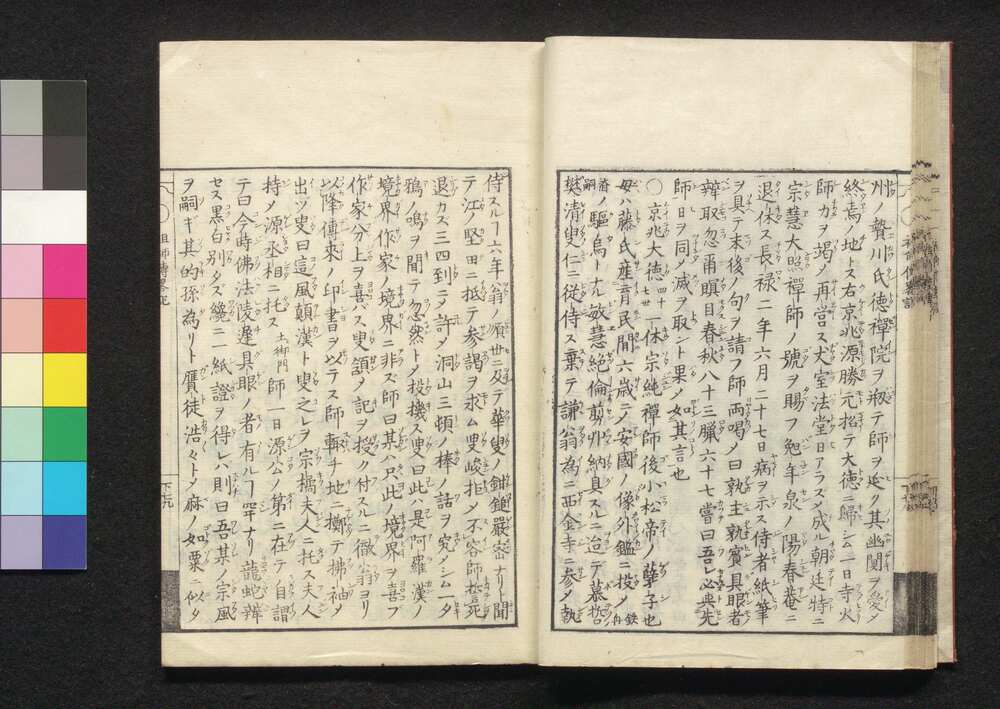 州ノ賛川氏徳禪院ヲ剏テ師ヲ延ク其幽閑ヲ愛メ
終焉ノ地トス右京兆源勝元招テ大徳ニ歸シム一日寺火
師カヲ竭メ再営ス丈室法堂日アラスメ成ル朝廷特ニ
宗慧大照禪師ノ號ヲ賜フ勉年泉ノ陽春菴ニ
退休ス長禄二年六月二十七日病ヲ示ス侍者紙筆
ヲ具テ末後ノ句ヲ請フ師両喝ノ曰孰主孰賓具眼者
辨取忽爾瞑目春秋八十三臘六十七嘗曰吾レ必與先
師日ヲ同メ滅ヲ取ント果メ如其言也
〇京兆大徳四十七世一休宗純禪師後小松帝ノ孽子也
母ハ藤氏産育民間六歳テノ安國ノ像外鑑ニ投メ
駆烏ト尤敏慧絶倫剪削納具スルニ迨テ慕哲
樊清叟仁ニ従侍ス棄テ謙翁為ニ西金寺ニ参メ執
侍スルヿ六年翁ノ順世ニ及テ華叟ノ鉗鎚嚴密ナリト聞
テ江ノ堅田ニ抵テ参謁ヲ求ム叟峻拒メ不容師誓死
退カス三四到ニメ許メ洞山三頓ノ棒ノ話ヲ究メシム一夕
鴉ノ鳴ヲ聞テ忽然トメ投機ス叟曰此ハ是阿羅漢ノ
境界作家ノ境界ニ非ズ師曰某ハ只此ノ境界ヲ喜ブ
作家分上ヲ喜バス叟領メ記ヲ授ク付スルニ徹翁ヨリ
以降傳來ノ印書ヲ以テス師輙チ地ニ擲テ拂袖メ
出ツ叟曰這風顛漢ト叟之レヲ宗橘夫人ニ托ス夫人
持メ源丞相ニ托ス土御門師一日源公ノ第ニ在テ自謂
テ曰今時佛法陵遲具眼ノ者有ルヿ罕ナリ龍蛇辨
セス黒白別タス纔ニ一紙證ヲ得レハ則曰吾某ノ宗風
ヲ嗣ギ其的孫為リト贋徒浩々トメ麻ノ如粟ニ似タ